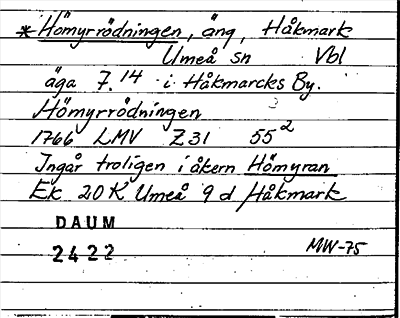 * Hömyrrödningen, äng, Håkmark
Umeå sn Vbl
äga 7.14 i Håkmarcks By.
Hömyrrödningen
1766 LMV Z31 55²
Ingår troligen i åkern Hömyran
Ek 20K Umeå 9 d Håkmark
DAUM
2422
MW-75